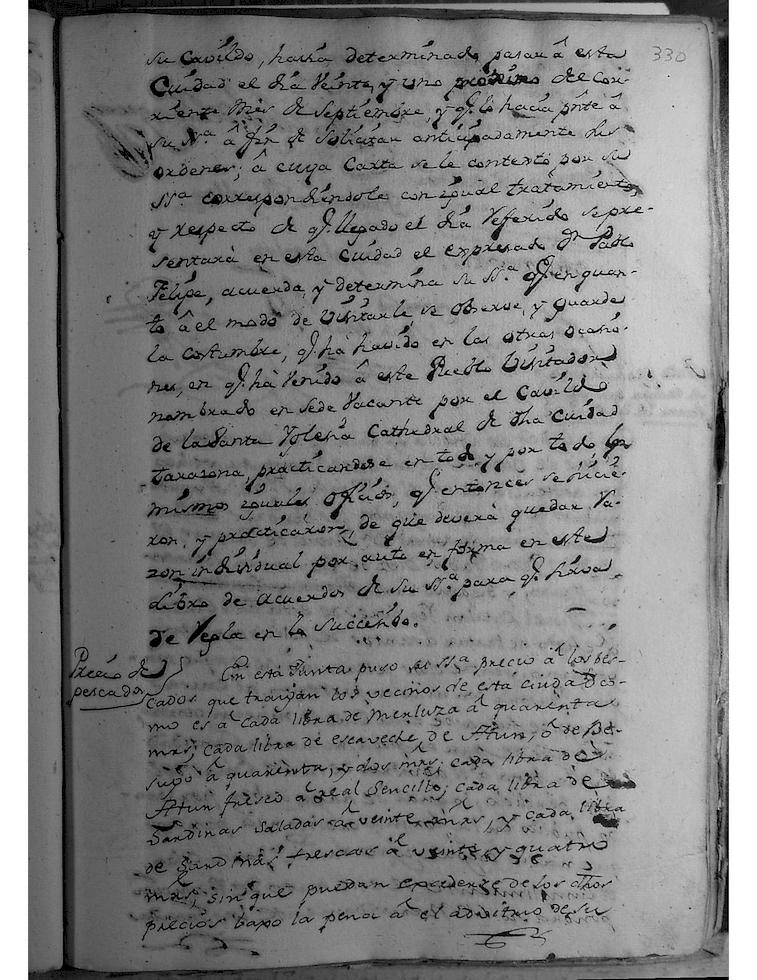 330
su Cavildo, havia determinado pasar â esta
Ciudad el dia Veinte, y uno proximo del Cor-
riente Mes de Septiembre, y q.e lo hacia pnte â
su SS.a â fin de Solicitar anticipadamente sus
ordenes; â cuya Carta se le contestó por su
SS.a correspondiendole con igual tratamiento,
y respecto de q.e llegado el dia referido se pre-
sentarà en esta Ciudad el expresado D.n Pablo
Felipe, acuerda, y determina su SS.a q.e en quan-
to â el modo de Visitarle, se observe, y guarde
la costumbre, q.e hà havido en las otras ocasio-
nes, en q.e hà Venido â este Pueblo Visitador
nombrado en Sede Vacante por el Cavildo
de la Santa Yglesia Cathedral de dha Ciudad
Tarazona, practicandose en todo y por todo los
mismos iguales oficios, q.e entonces se hicie-
ron, y practicaron, de que deverà quedar Ra-
zon individual por auto en forma en este
Libro de Acuerdos de su SS.a para q.e sirva
de Regla en lo succesibo.
Precio de
pescados
En esta Junta puso su SS.a precio â los pes-
cados que traiyan los vecinos de esta ciudad co-
mo es â cada libra de Merluza â quarenta
mrs; cada libra de escaveche de Atun, ô de Be-
sugo â quarenta, y dos mrs; cada libra de
Atun fresco â real Sencillo; cada libra de
Sardinas Saladas â veinte mrs, y cada libra
de Sardinas frescas â veinte y quatro
mrs; sin que puedan excederse de los dhos
precios baxo la pena â el advitrio de su